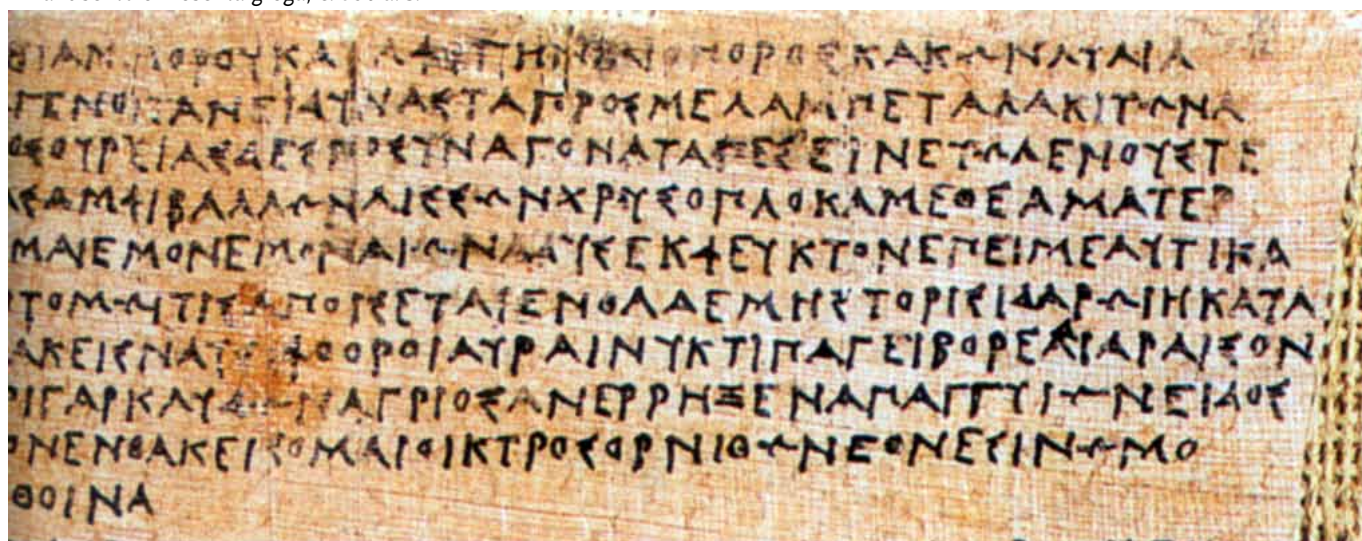 ΚΑΚΩΝΛΥΑΙΑ
ΓΕΝΟΙΤΑΝΕΙΔΥΝΑΣΤΑΠΡΟΣΜΕΛΑΜΠΕΤΑΛΑΚΙΤΩΝΑ
ΟΣΟΥΡΕΙΑΣΔΕΣΠΟΣΥΝΑΓΟΝΑΤΑΠΕΣΕΙΝΕΤΩΛΕΝΟΥΣΤΕ
ΑΣΑΜΦΙΒΑΛΛΩΝΛΙΣΣΩΝΧΡΥΣΟΠΛΟΚΑΜΕΘΕΑΜΑΤΕΡ
ΜΑΙΕΜΟΝΕΜΟΝΑΙΩΝΑΔΥΣΕΚΦΕΥΚΤΟΝΕΠΕΙΜΕΑΥΤΙΚΑ
ΟΤΟΜΩΙΤΙΣΑΠΟΙΣΕΤΑΙΕΝΘΑΔΕΜΗΣΤΟΡΙΣΙΔΑΡΩΙΗΚΑΤΑ
ΑΚΕΙΣΝΑΥΣΙΦΘΟΡΟΙΑΥΡΑΙΝΥΚΤΙΠΑΓΕΙΒΟΡΕΑΙΔΙΑΡΑΙΣΟΝ
ΡΙΓΑΡΚΛΥΔΩΝΑΓΡΙΟΣΑΝΕΡΡΗΞΕΝΑΠΑΓΓΥΙΩΝΕΙΔΟΣ
ΟΝΕΝΘΑΚΕΙΣΟΜΑΙΟΙΚΤΡΟΣΟΡΝΙΘΩΝΕΘΝΕΣΙΝΩΜΟ
ΘΟΙΝΑ